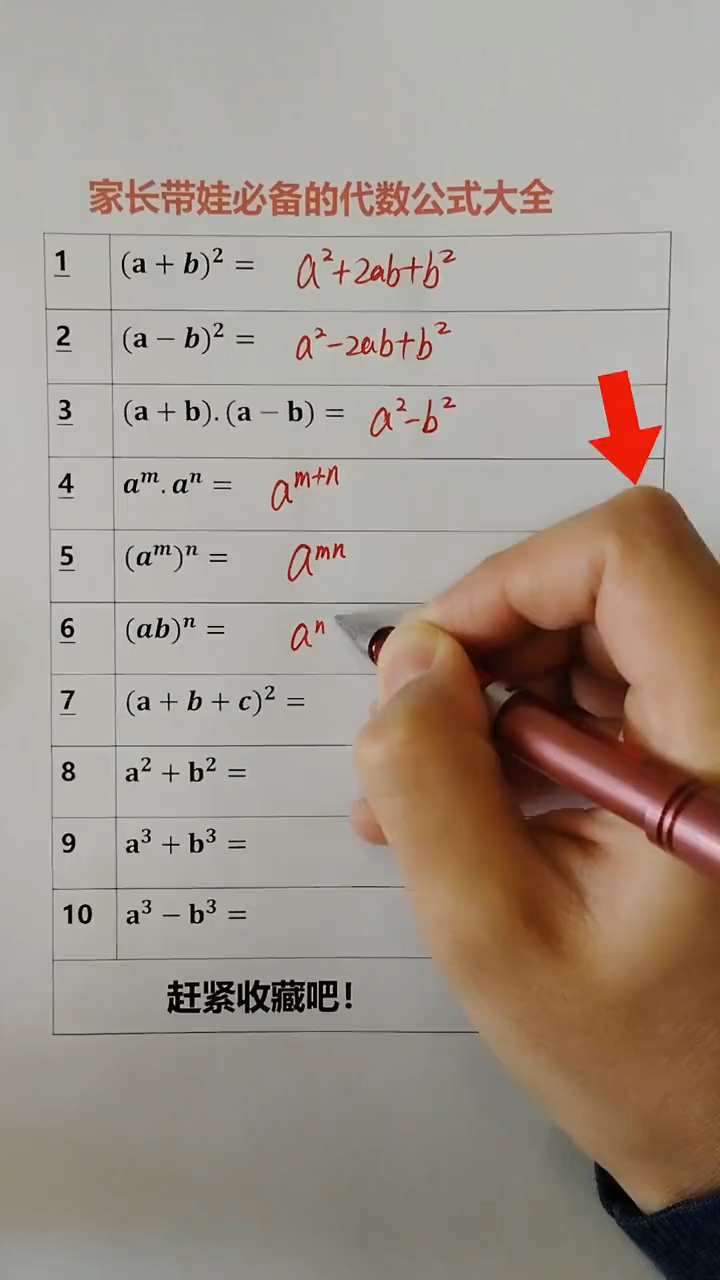 家长带娃必备的代数公式大全
1 (a + b)² = a²+2ab+b²
2 (a − b)² = a²-2ab+b²
3 (a + b).(a − b) = a²-b²
4 aᵐ.aⁿ = aᵐ⁺ⁿ
5 (aᵐ)ⁿ = aᵐⁿ
6 (ab)ⁿ = aⁿ
7 (a + b + c)² =
8 a² + b² =
9 a³ + b³ =
10 a³ − b³ =
赶紧收藏吧!